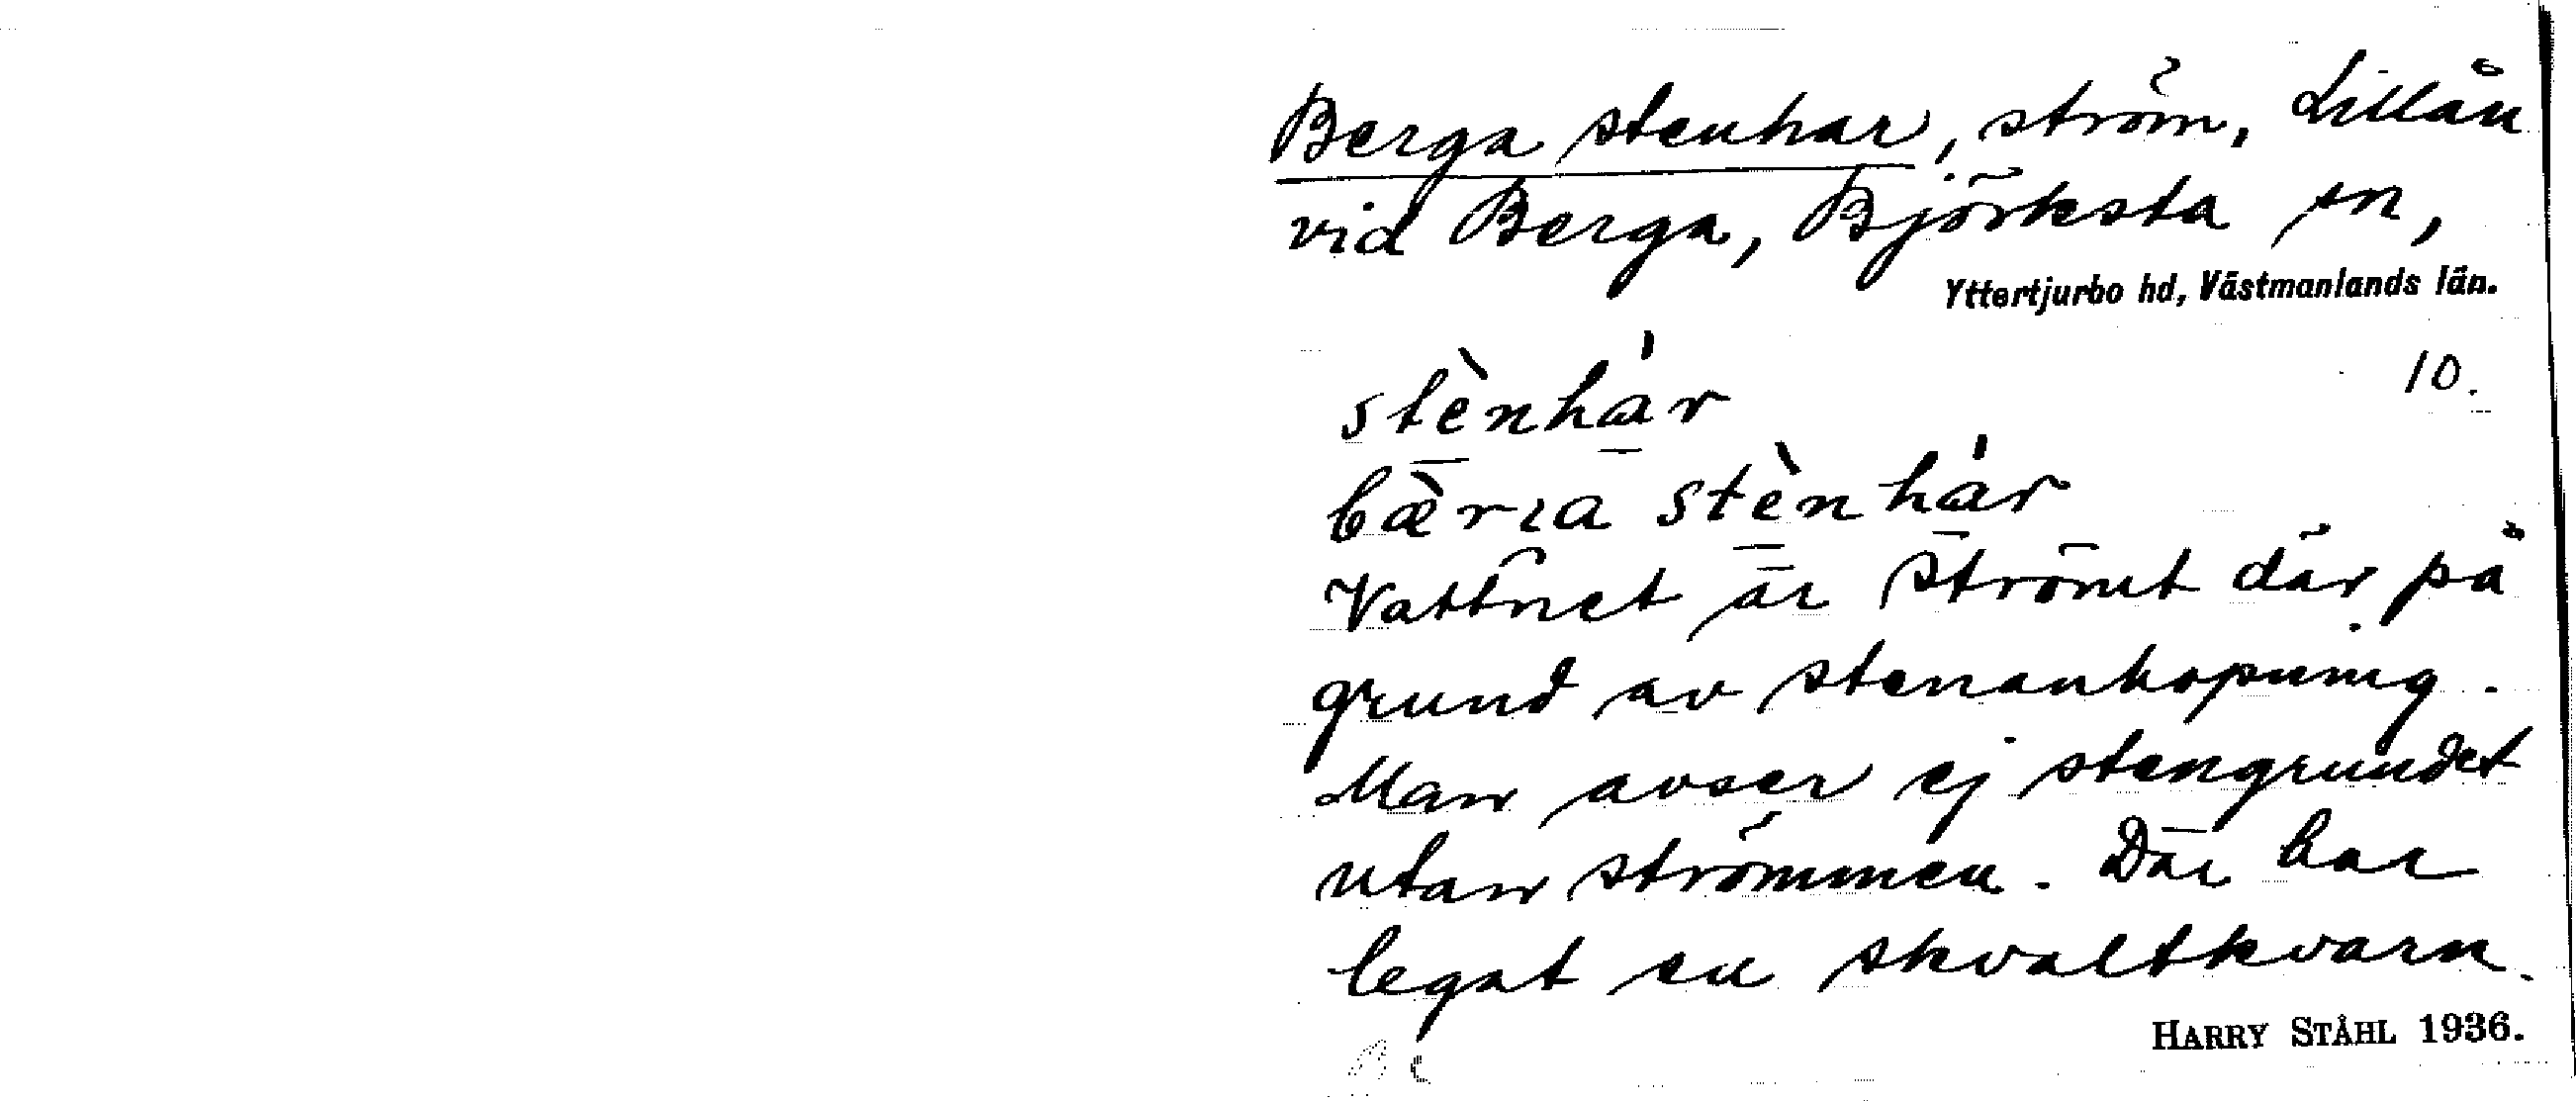 Berga stenhar, ström, Lillån
vid Berga, Björksta sn,
Yttertjurbo hd, Västmanlands län.
10.
stènhár
bæ̀rɪa stènhár
Vattnet är strömt där på
grund av stenanhopning.
Man avser ej stengrundet
utan strömmen. Där har
legat en skvaltkvarn.
HARRY STÅHL 1936.